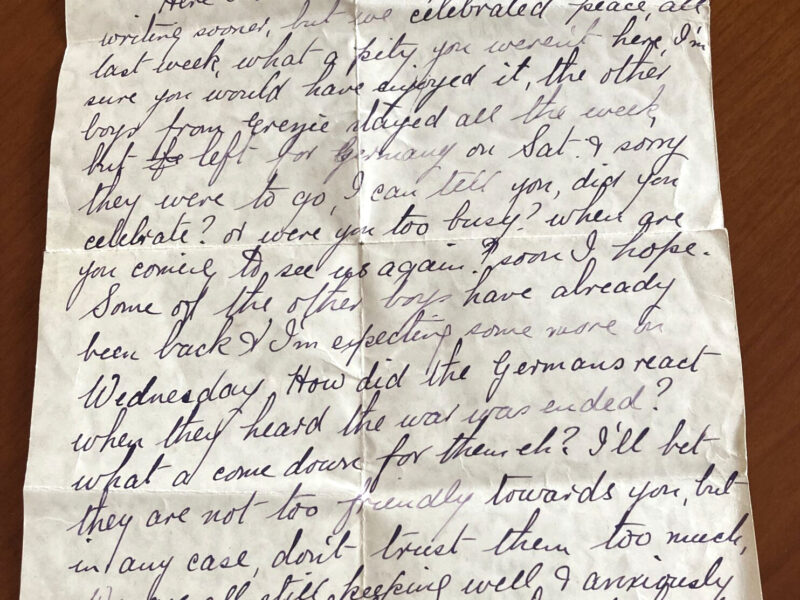 Here
writing sooner, but we celebrated peace, all
last week, what a pity you weren't here, I'm
sure you would have enjoyed it, the other
boys from stayed all the week,
but left for Germany on Sat. & sorry
they were to go, I can tell you, did you
celebrate? or were you too busy? when are
you coming to see us again? soon I hope.
Some of the other boys have already
been back & I'm expecting some more on
Wednesday. How did the Germans react
when they heard the war was ended?
what a come down for them eh? I'll bet
they are not too friendly towards you, but
in any case, don't trust them too much,
We are all still keeping well & anxiously